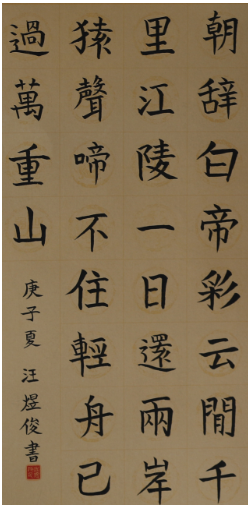 朝辞白帝彩云間千
里江陵一日還兩岸
猿聲啼不住輕舟已
過萬重山
庚子夏 汪煜俊書